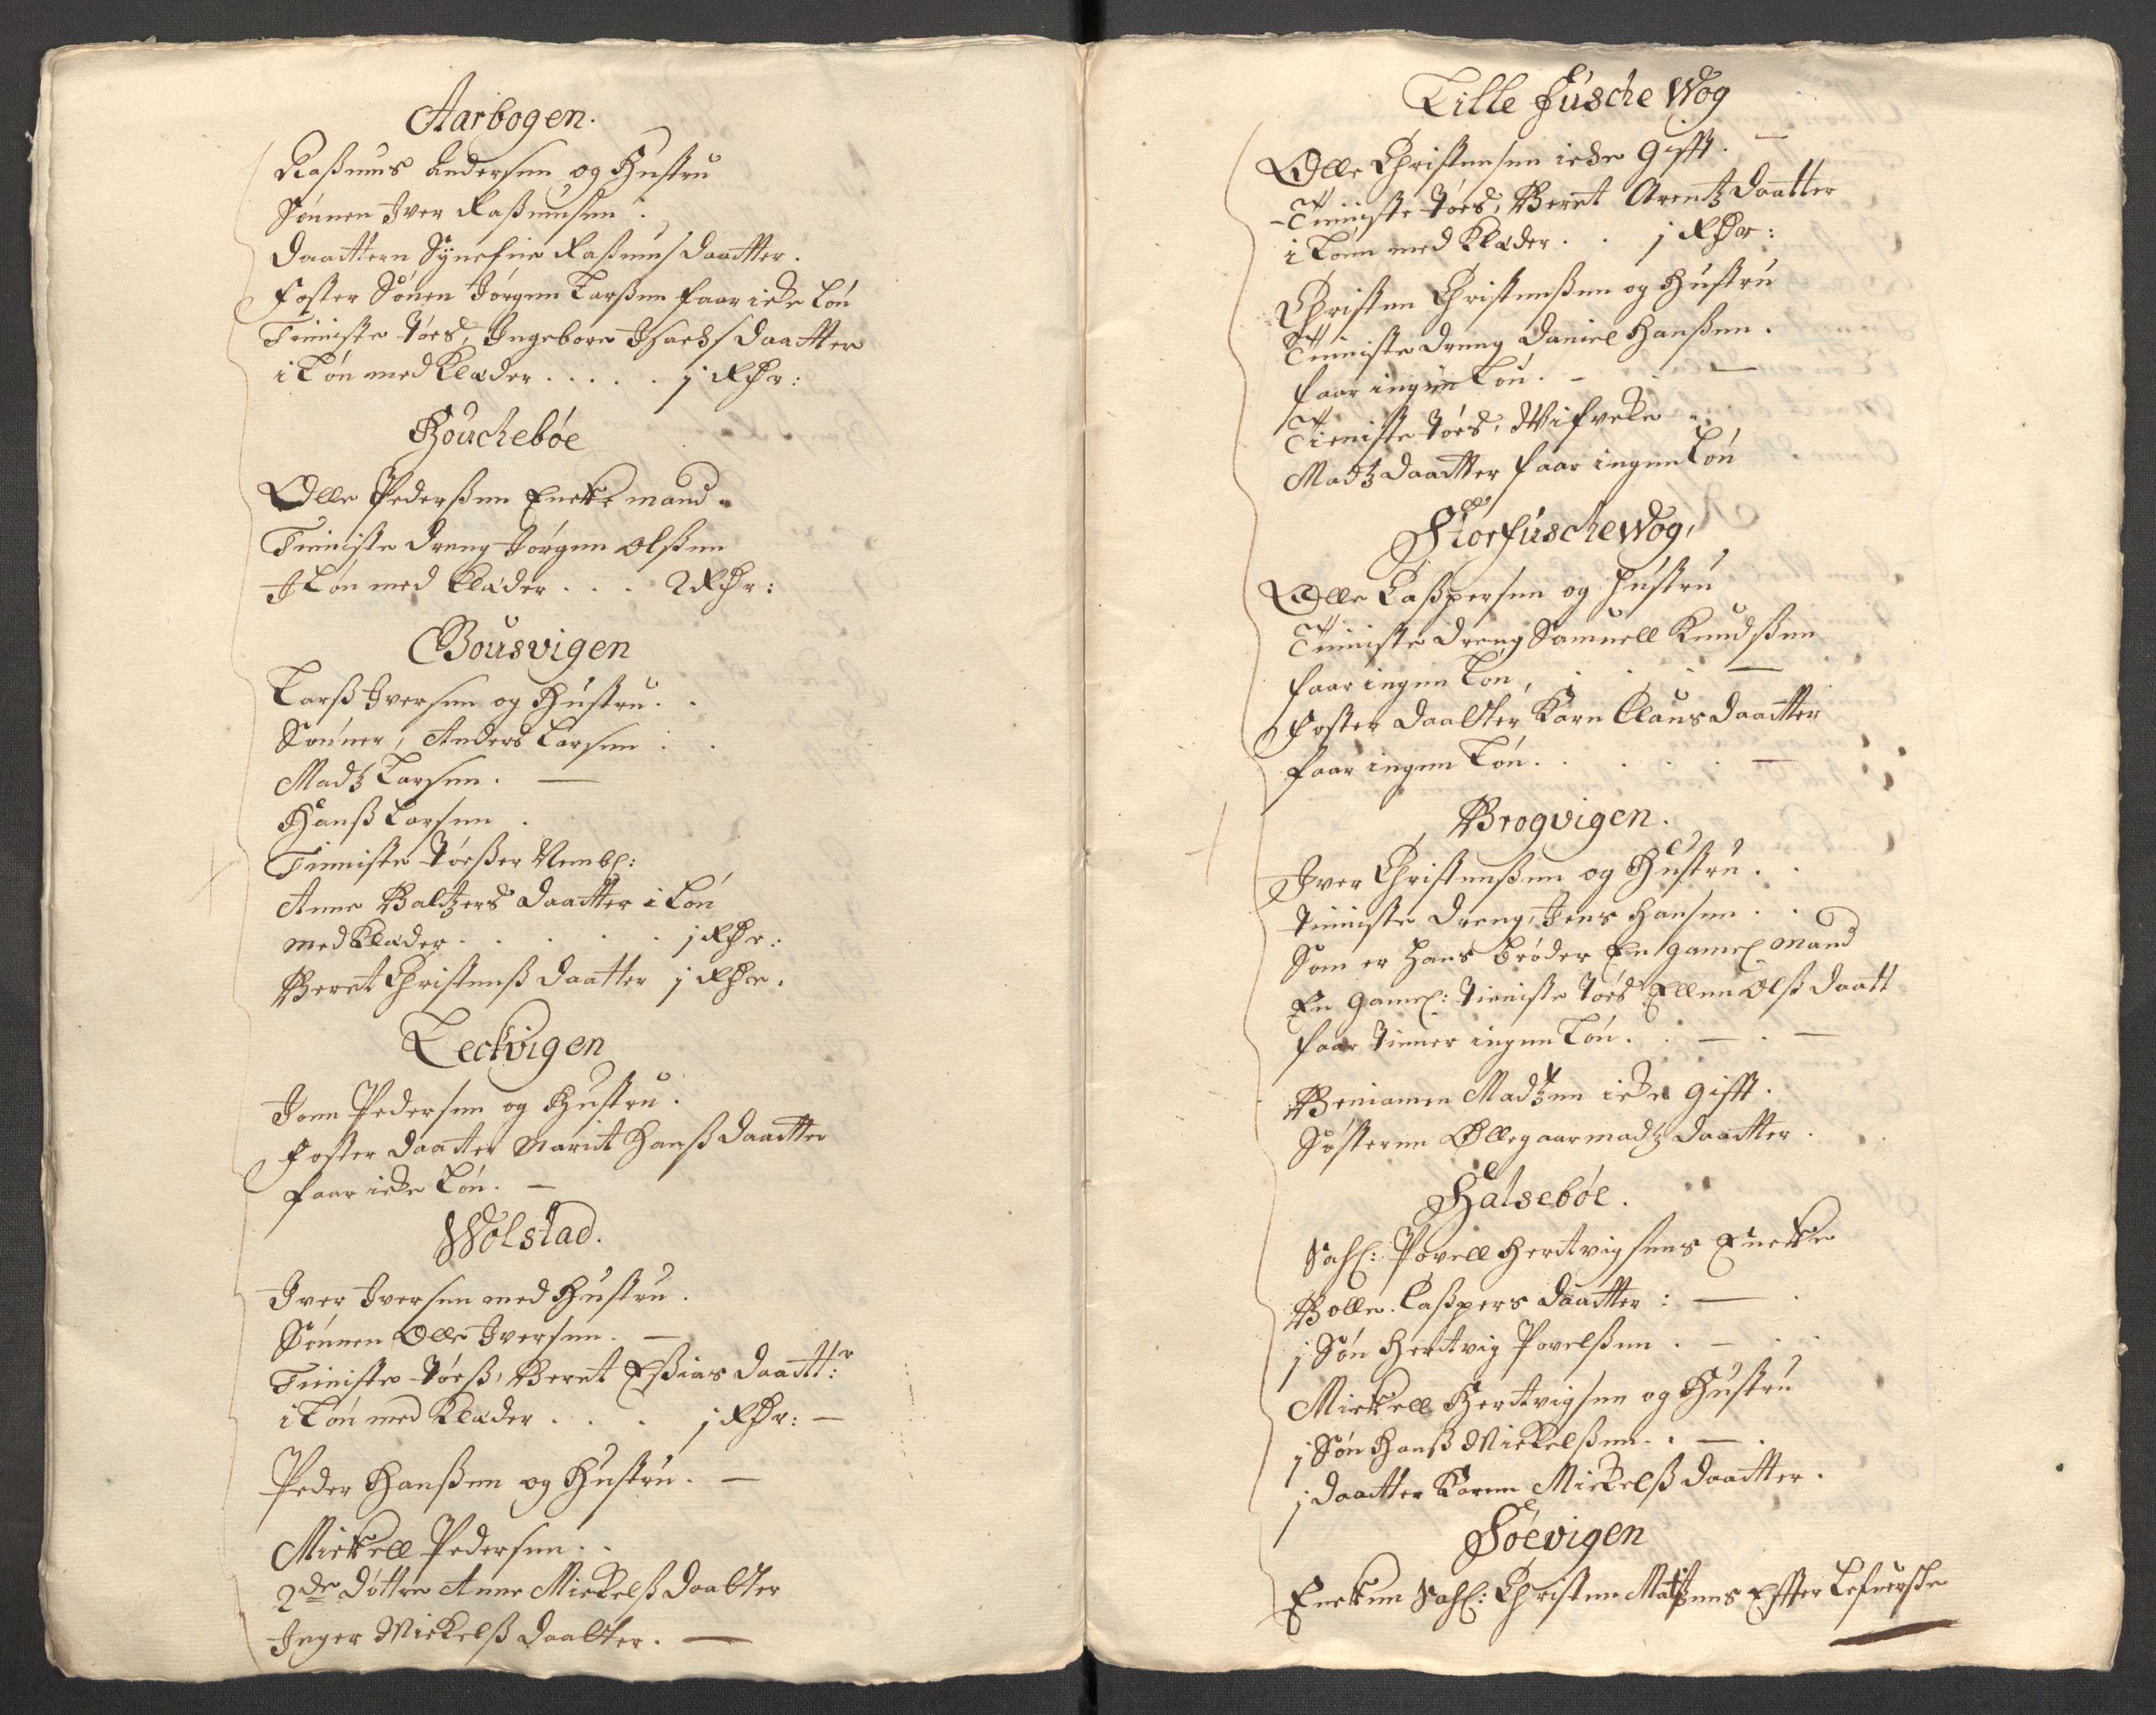 Aarbogen.
Raßmus Andersen og Hustru
Sönnen Iver Raßmusen.
Daattern Synefue Raßmusdaatter.
Foster Sönen Jörgen Larßen faar icke Lön
Tienniste Töes, Ingebore Isachsdaatter
i Lön med Klæder . . . . . j Rdr:
Houchebóe
Olle Pederßen Encke mand.
Tienniste dreng Jörgen Olßen
I Lön med klæder . . . 2 Rdr:
Bousvigen
Larß Iversen og Hustru.
Sönner, Anders Larsen
Madz Larsen.
Hanß Larsen
Tienniste Töeßer Nembl:
Anne Baltzersdaatter i Lön
med Klæder . . . . . j Rdr:
Beret Christenß daatter j Rdr.
Leckvigen
Jonn Pedersen og Hustru.
Foster daatter Marit Hanß daatter
faar icke Lön.
Wolstad.
Iver Iversen med Hustru.
Sönnen Olle Iversen.
Tienniste Töeß, Beret Eßias daatt:r
i Lön med Klæder . . . j Rdr:
Peder Hanßen og Hustru.
Mickell Pedersen.
2de Döttre Anne Mickelß daatter
Inger Mickelß daatter.
Lille Fusche Wog
Olle Christensen icke Gifft.
Tienniste Töes, Beret Arentz daatter
i Lönn med Klæder . . j Rdr:
Christen Christenßen og Hustru
Tienniste dreng Daniel Hanßen.
faar ingen Lön.
Tieniste Töes, Wifveke
Madz daatter faar ingen Lön
Storfuschewog,
Olle Caßpersen og Hustru
Tienniste dreng Samuell Knudßen
faar ingen Lön,
Foster daatter Karn Clausdaatter
faar ingen Lön.
Brogvigen.
Iver Christenßen og Hustru.
Tienniste dreng, Jens Hansen.
Som er hans broder En gamel mand
En gamel: Tienniste Töes Ellen Olß daatt
faar Tienner ingen Lön.
Beniamen Madzen icke Gifft.
Sösteren Ollegaar madz daatter.
Halsebóe.
Sahl: Povell Hertvigsens Encke
Bolle. Caßpers daatter:
j Sön Hertvig Povelßen.
Mickell Hertvigsen og Hustru
j Sön Hanß Mickelßen.
j daatter Karen Mickelß daatter.
Söevigen
Encken Sahl: Christen Matzens Efter Lefversche